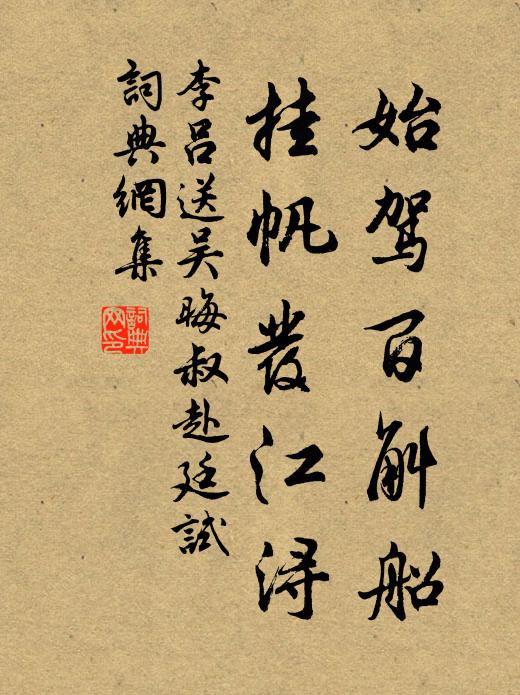 始驾百斛船
挂帆發江潯
李吕送吴晦叔赴廷試
詞典網集
詞典
网印